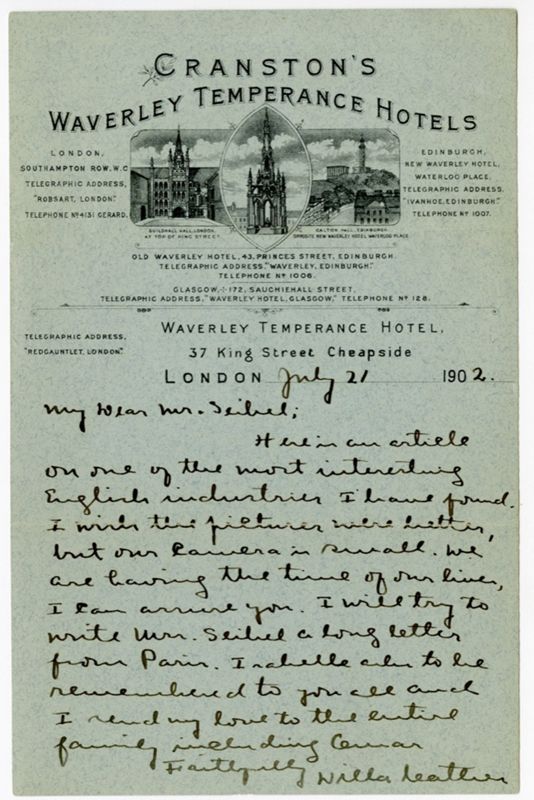 CRANSTON'S
WAVERLEY TEMPERANCE HOTELS
LONDON,
SOUTHAMPTON ROW, W.C
TELEGRAPHIC ADDRESS,
"ROBSART, LONDON."
TELEPHONE Nº 4131 GERARD.
EDINBURGH,
NEW WAVERLEY HOTEL,
WATERLOO PLACE.
TELEGRAPHIC ADDRESS.
"IVANHOE, EDINBURGH."
TELEPHONE Nº 1007.
GUILDHALL, LONDON,
AT TOP OF KING STREET
CALTON HILL, EDINBURGH
OPPOSITE NEW WAVERLEY HOTEL WATERLOO PLACE
OLD WAVERLEY HOTEL, 43, PRINCES STREET, EDINBURGH.
TELEGRAPHIC ADDRESS, "WAVERLEY, EDINBURGH."
TELEPHONE Nº 1006.
GLASGOW, 172, SAUCHIEHALL STREET.
TELEGRAPHIC ADDRESS, "WAVERLEY HOTEL, GLASGOW," TELEPHONE Nº 128.
TELEGRAPHIC ADDRESS,
"REDGAUNTLET, LONDON."
WAVERLEY TEMPERANCE HOTEL,
37 King Street Cheapside
LONDON July 21 1902.
My Dear Mr. Seibel;
Here is an article
on one of the most interesting
English industries I have found.
I wish the pictures were better,
but our camera is small. We
are having the time of our lives,
I can assure you. I will try to
write Mrs. Seibel a long letter
from Paris. Isabelle asks to be
remembered to you all and
I send my love to the entire
family including Caesar
Faithfully Willa Cather